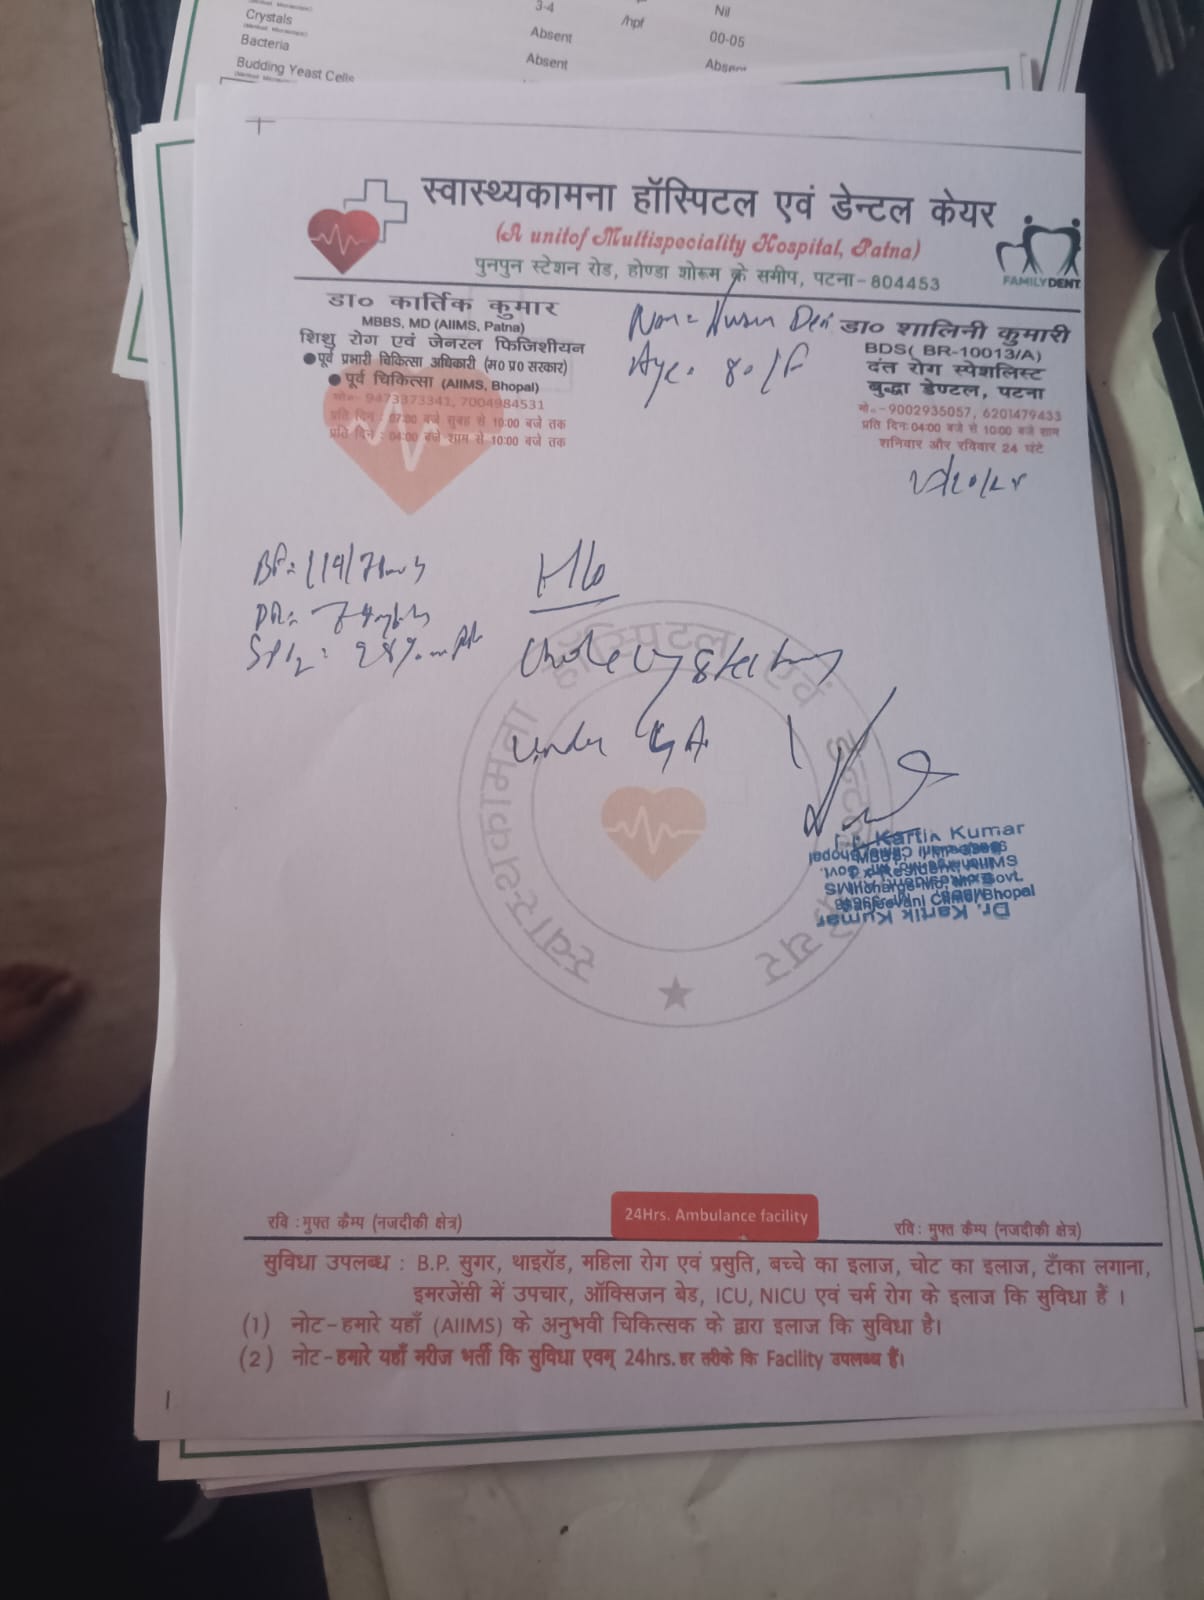 Crystals
3-4
/hpf
Nil
Bacteria
Absent
00-05
Budding Yeast Cells
Absent
Absent
स्वास्थ्यकामना हॉस्पिटल एवं डेन्टल केयर
(A unitof Multispeciality Hospital, Patna)
पुनपुन स्टेशन रोड, होण्डा शोरूम के समीप, पटना-804453
FAMILYDENT
डा० कार्तिक कुमार
MBBS, MD (AIIMS, Patna)
शिशु रोग एवं जेनरल फिजिशीयन
●पूर्व प्रभारी चिकित्सा अधिकारी (म० प्र० सरकार)
● पूर्व चिकित्सा (AIIMS, Bhopal)
मो०- 9473373341, 7004984531
प्रति दिन : 07:00 बजे सुबह से 10:00 बजे तक
प्रति दिन : 04:00 बजे शाम से 10:00 बजे तक
Age. 80/F
डा० शालिनी कुमारी
BDS( BR-10013/A)
दंत रोग स्पेशलिस्ट
बुद्धा डेण्टल, पटना
मो०-9002935057, 6201479433
प्रति दिन: 04:00 बजे से 10:00 बजे शाम
शनिवार और रविवार 24 घंटे
BP=
H/o
Cholecystectomy
under GA
Kartik Kumar
Dr. Kartik Kumar
स्वास्थ्यकामना हॉस्पिटल एवं डेन्टल केयर
24Hrs. Ambulance facility
रवि : मुफ्त कैम्प (नजदीकी क्षेत्र)
रवि : मुफ्त कैम्प (नजदीकी क्षेत्र)
सुविधा उपलब्ध : B.P. सुगर, थाइरॉड, महिला रोग एवं प्रसुति, बच्चे का इलाज, चोट का इलाज, टाँका लगाना,
इमरजेंसी में उपचार, ऑक्सिजन बेड, ICU, NICU एवं चर्म रोग के इलाज कि सुविधा हैं ।
(1) नोट-हमारे यहाँ (AIIMS) के अनुभवी चिकित्सक के द्वारा इलाज कि सुविधा है।
(2) नोट-हमारे यहाँ मरीज भर्ती कि सुविधा एवम् 24hrs. हर तरीके कि Facility उपलब्ध हैं।